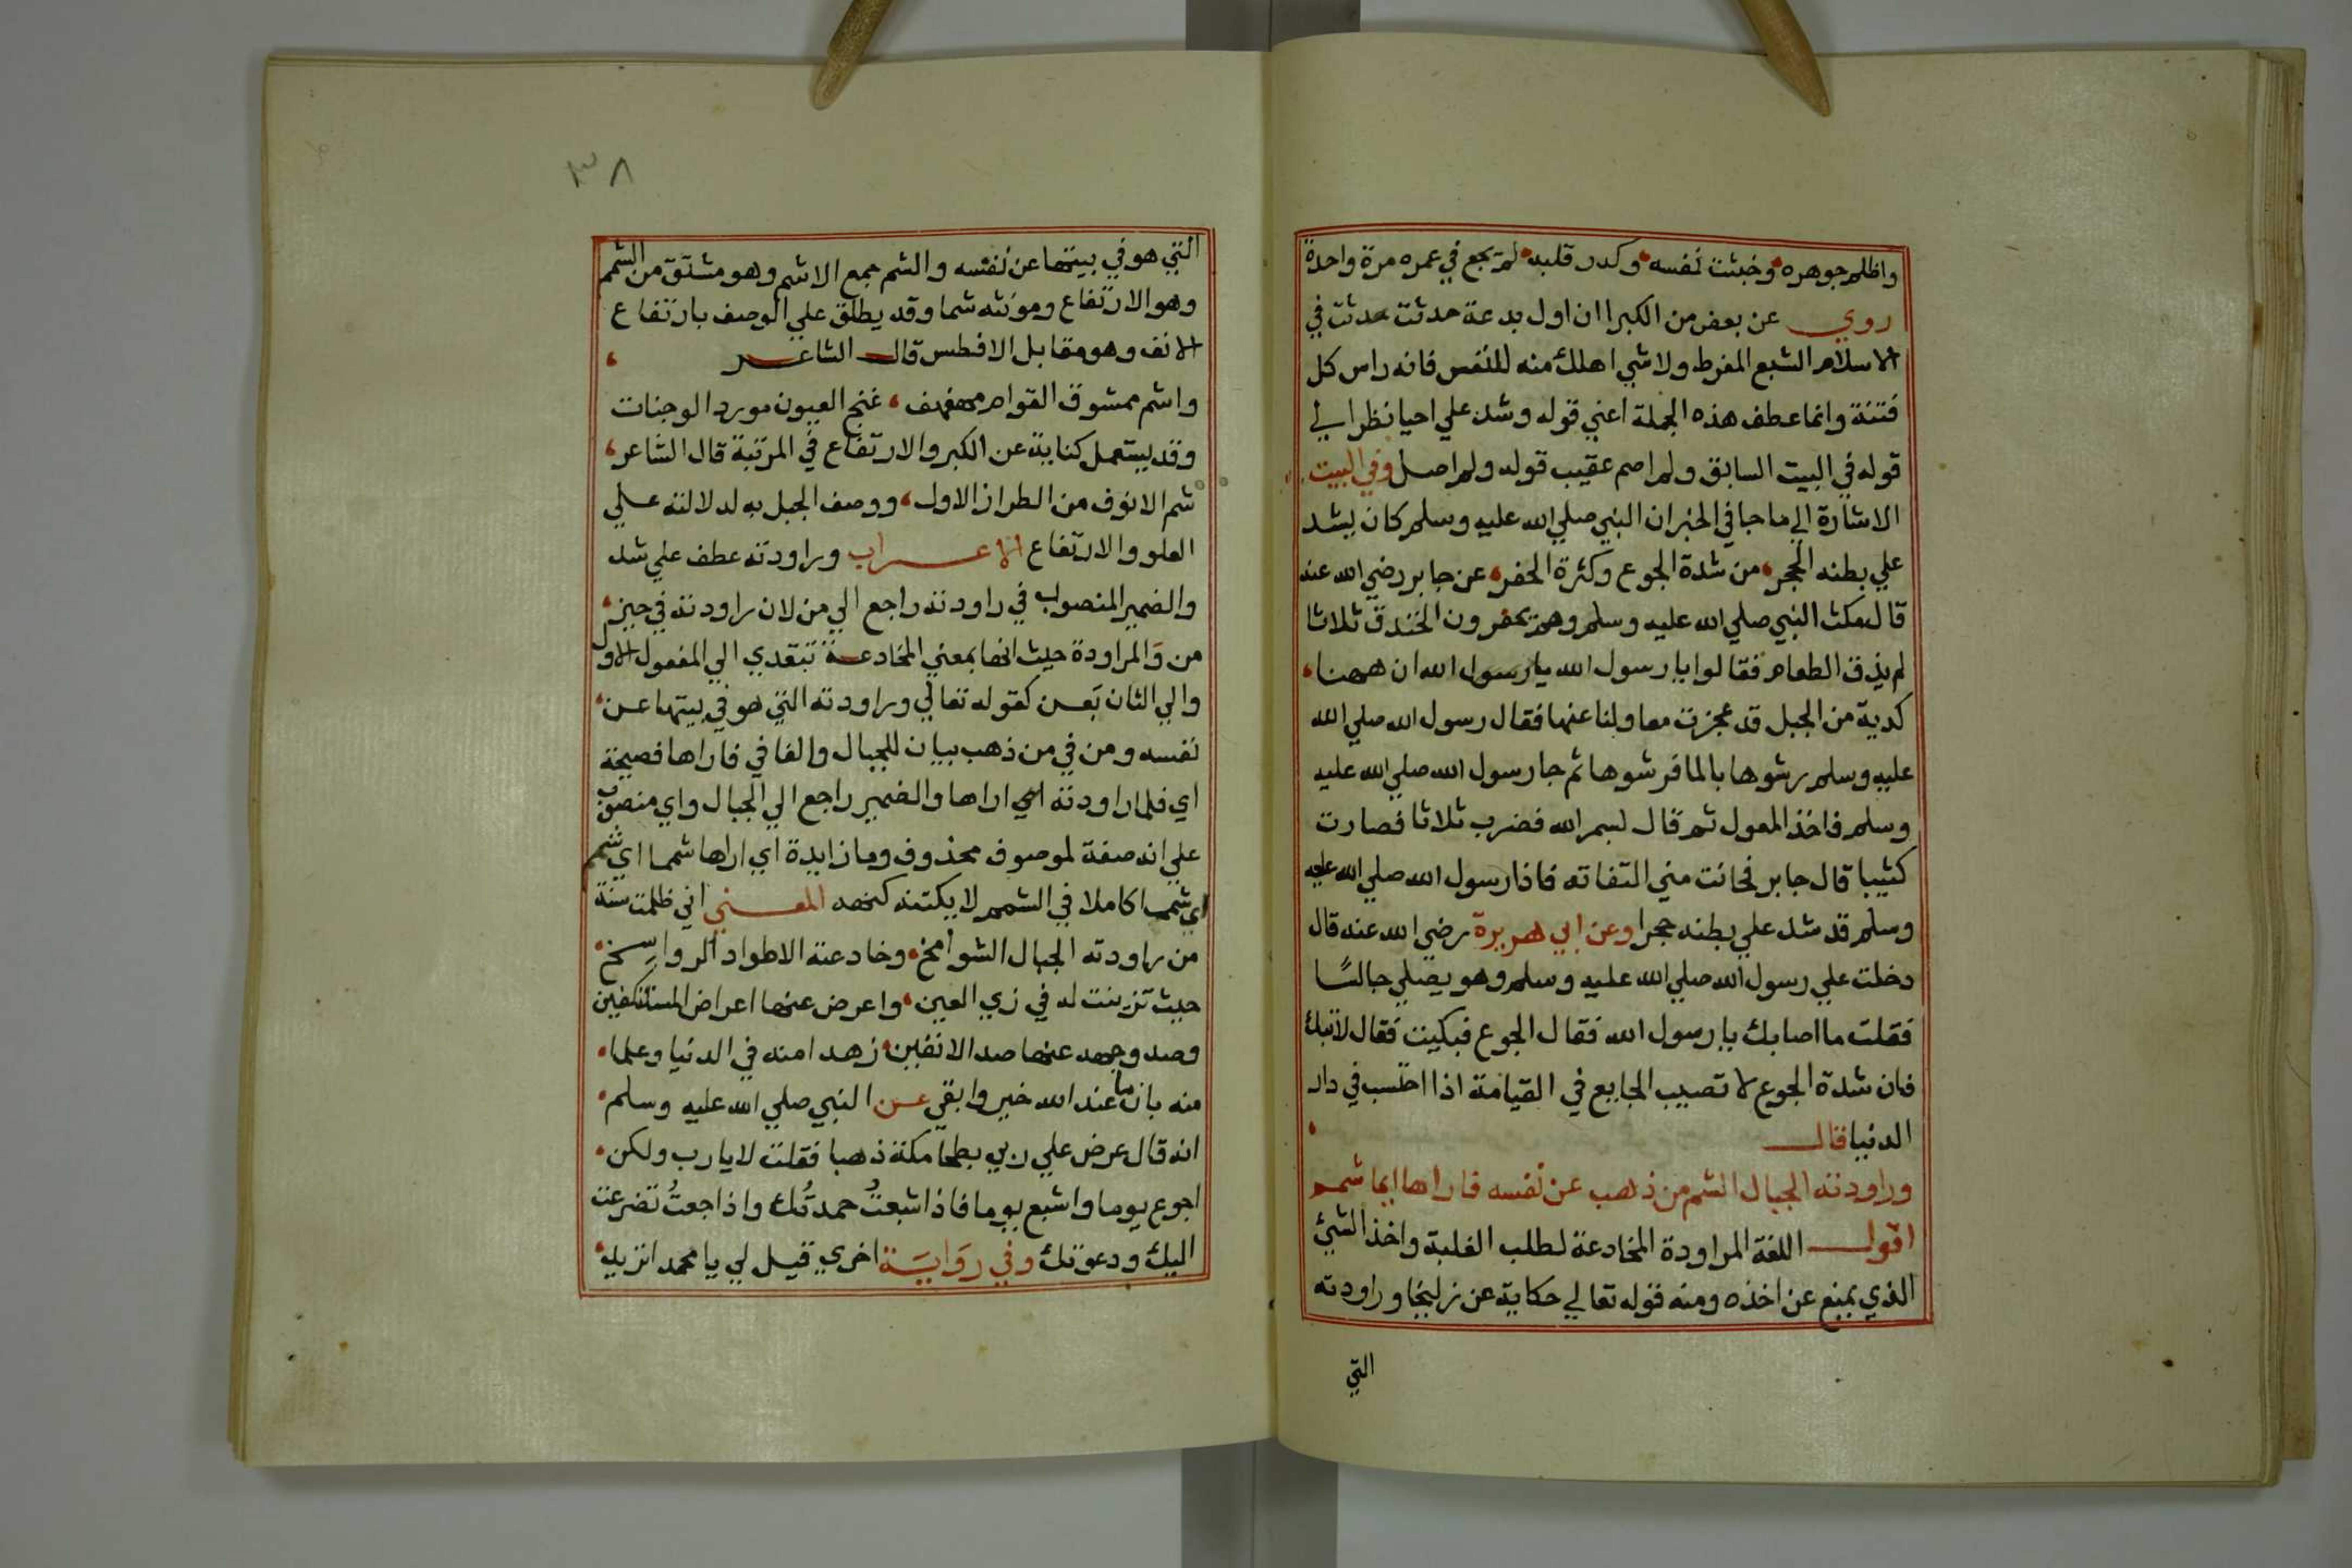 واظلم جوهره وخبثت نفسه وكدر قلبه لم يجع في عمره مرة واحدة
روي عن بعض من الكبرا ان اول بدعة حدثت حدثت في
الاسلام الشبع المفرط ولا شي اهلك منه للنفس فانه راس كل
فتنة وانما عطف هذه الجملة اعني قوله وشد علي احيا نظرا لي
قوله في البيت السابق ولم اصم عقيب قوله ولم اصل وفي البيت
الاشارة الي ما جا في الخبر ان النبي صلي الله عليه وسلم كان يشد
علي بطنه الحجر من شدة الجوع وكثرة الحفر عن جابر رضي الله عنه
قال مكث النبي صلي الله عليه وسلم وهم يحفرون الخندق ثلاثا
لم يذق الطعام فقالوا يا رسول الله يا رسول الله ان ههنا
كدية من الجبل قد عجزت معاولنا عنها فقال رسول الله صلي الله
عليه وسلم رشوها بالما فرشوها ثم جا رسول الله صلي الله عليه
وسلم فاخذ المعول ثم قال بسم الله فضرب ثلاثا فصارت
كثيبا قال جابر فحانت مني التفاته فاذا رسول الله صلي الله عليه
وسلم قد شد علي بطنه حجرا وعن ابي هريرة رضي الله عنه قال
دخلت علي رسول الله صلي الله عليه وسلم وهو يصلي جالسًا
فقلت ما اصابك يا رسول الله فقال الجوع فبكيت فقال لا تبك
فان شدة الجوع لا تصيب الجايع في القيامة اذا احتسب في دار
الدنيا قال
وراودته الجبال الشم من ذهب عن نفسه فاراها ايما شمم
اقول اللغة المراودة المخادعة لطلب الغلبة واخذ الشئ
الذي يمنع عن اخذه ومنه قوله تعالي حكاية عن زليخا وراودته
التي
٣٨
التي هو في بيتها عن نفسه والشم جمع الاشم وهو مشتق من الشمم
وهو الارتفاع ومونثه شما وقد يطلق علي الوصف بارتفاع
الانف وهو مقابل الافطس قال الشاعر
واشم ممشوق القوام مهفهف غنج العيون مورد الوجنات
وقد يستعمل كناية عن الكبر والارتفاع في المرتبة قال الشاعر
شم الانوف من الطراز الاول ووصف الجبل به لدلالته علي
العلو والارتفاع الاعراب وراودته عطف علي شد
والضمير المنصوب في راودته راجع الي من لان راودته في حيز
من وَالمراودة حيث انها بمعني المخادعة تتعدي الي المفعول الاول
والي الثان بَعن كقوله تعالي وراودته التي هو في بيتها عن
نفسه ومن في من ذهب بيان للجبال والفا في فاراها فصيحة
اي فلما راودته اي اراها والضمير راجع الي الجبال واي منصوب
علي انه صفة لموصوف محذوف وما زايدة اي اراها شمما اي شمم
اي شمما كاملا في الشمم لا يكتنه كنهه المعني اني ظلمت سنة
من راودته الجبال الشوامخ وخادعته الاطواد الرواسِخ
حيث تزينت له في زي العين واعرض عنها اعراض المستنكفين
وصد وجهه عنها صد الانفين زهدا منه في الدنيا وعلما
منه بان ما عند الله خير وابقي عن النبي صلي الله عليه وسلم
انه قال عرض علي ربي بطحا مكة ذهبا فقلت لا يا رب ولكن
اجوع يوما واشبع يوما فاذا شبعتُ حمدتُك واذا جعتُ تضرعت
اليك ودعوتك وفي رَوَايَة اخري قيل لي يا محمد اتريد